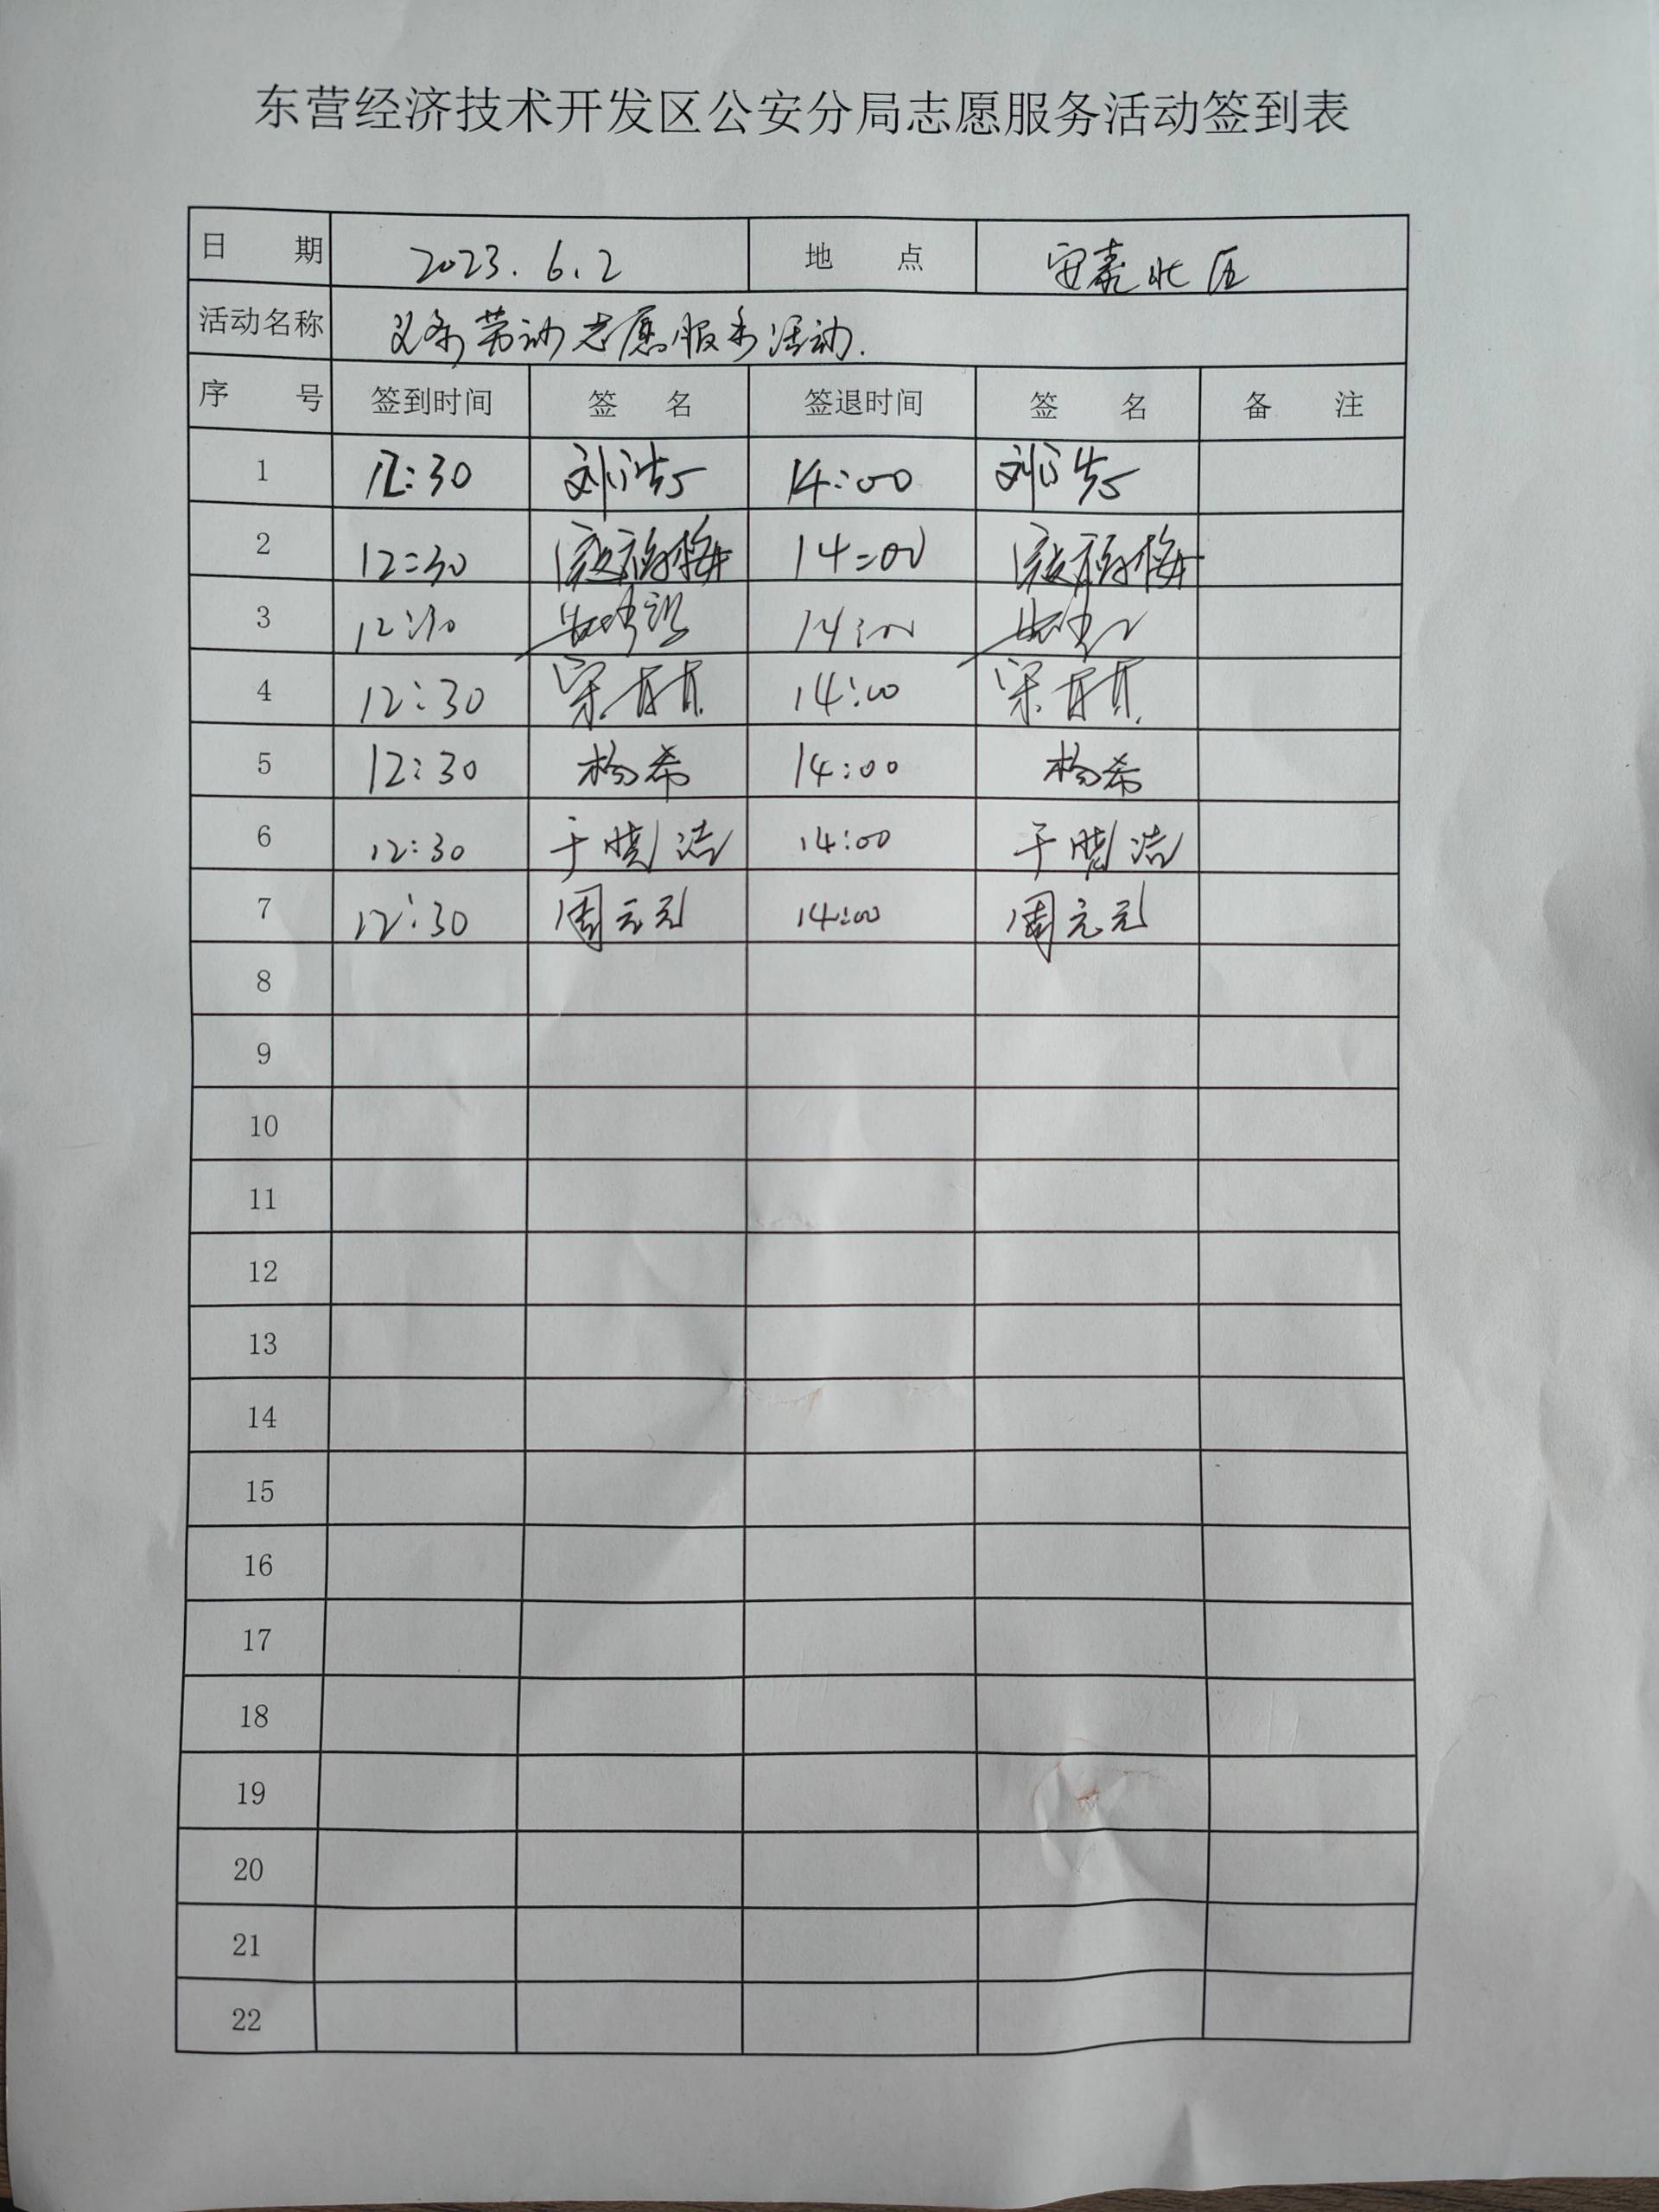 东营经济技术开发区公安分局志愿服务活动签到表
日 期 2023.6.2 地 点 安嘉北区
活动名称 义务劳动志愿服务活动.
序 号 签到时间 签 名 签退时间 签 名 备 注
1 12:30 14:00
2 12:30 14:00
3 14:00
4 12:30 14:00
5 12:30 杨希 14:00 杨希
6 12:30 于晓洁 14:00 于晓洁
7 12:30 周元元 14:00 周元元
8
9
10
11
12
13
14
15
16
17
18
19
20
21
22